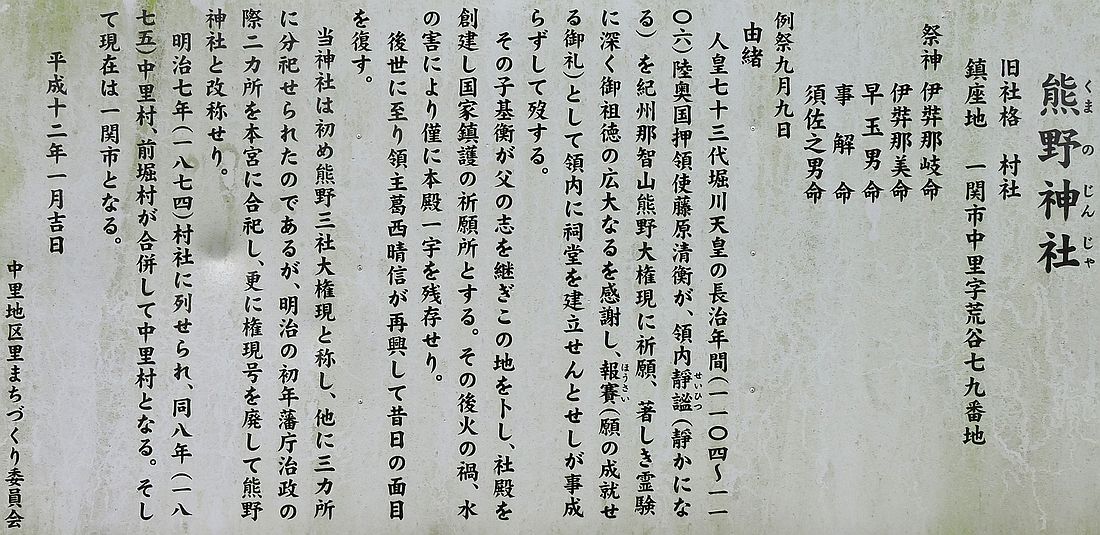 熊野神社
くまのじんじゃ
旧社格 村社
鎮座地 一関市中里字荒谷七九番地
祭神 伊弉那岐命
伊弉那美命
早玉男命
事解命
須佐之男命
例祭九月九日
由緒
人皇七十三代堀川天皇の長治年間(一一〇四〜一一
〇六)陸奥国押領使藤原清衡が、領内靜謐(静かにな
せいひつ
る)を紀州那智山熊野大権現に祈願、著しき霊験
に深く御祖徳の広大なるを感謝し、報賽(願の成就せ
ほうさい
る御礼)として領内に祠堂を建立せんとせしが事成
らずして歿する。
その子基衡が父の志を継ぎこの地をトし、社殿を
創建し国家鎮護の祈願所とする。その後火の禍、水
の害により僅に本殿一宇を残存せり。
後世に至り領主葛西晴信が再興して昔日の面目
を復す。
当神社は初め熊野三社大権現と称し、他に三カ所
に分祀せられたのであるが、明治の初年藩庁治政の
際二カ所を本宮に合祀し、更に権現号を廃して熊野
神社と改称せり。
明治七年(一八七四)村社に列せられ、同八年(一八
七五)中里村、前堀村が合併して中里村となる。そし
て現在は一関市となる。
平成十二年一月吉日
中里地区里まちづくり委員会